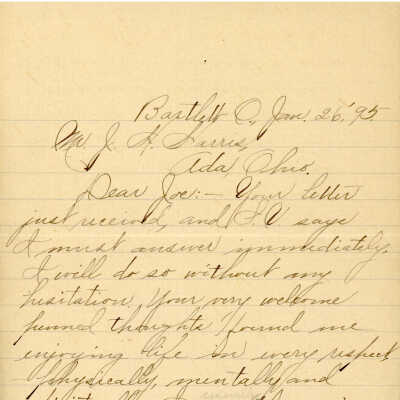 Bartlett O., Jan. 26, '95.
Mr. J. H. Harris,
Ada, Ohio.
Dear Joe:— Your letter
just received, and I. V says
I must answer immediately.
I will do so without any
hesitation. Your very welcome
penned thoughts found me
enjoying life in every respect
physically, mentally and